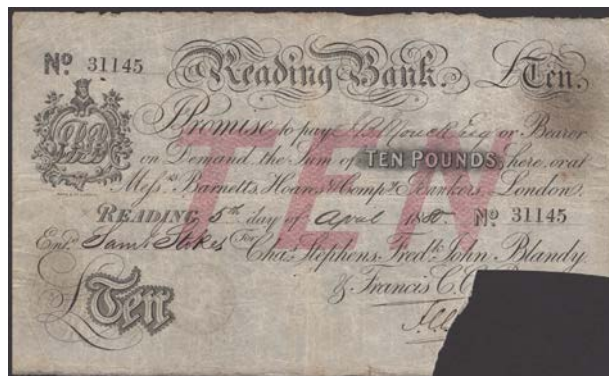 Nº 31145 Reading Bank. £Ten.
Promise to pay or Bearer
on Demand the Sum of TEN POUNDS, here, or at
Messrs Barnetts, Hoares & Compy Bankers, London.
READING 5th day of April 1880 Nº 31145
Entd Saml Stikes For Chas Stephens, Fredk John Blandy
& Francis C. C.
£Ten
TEN